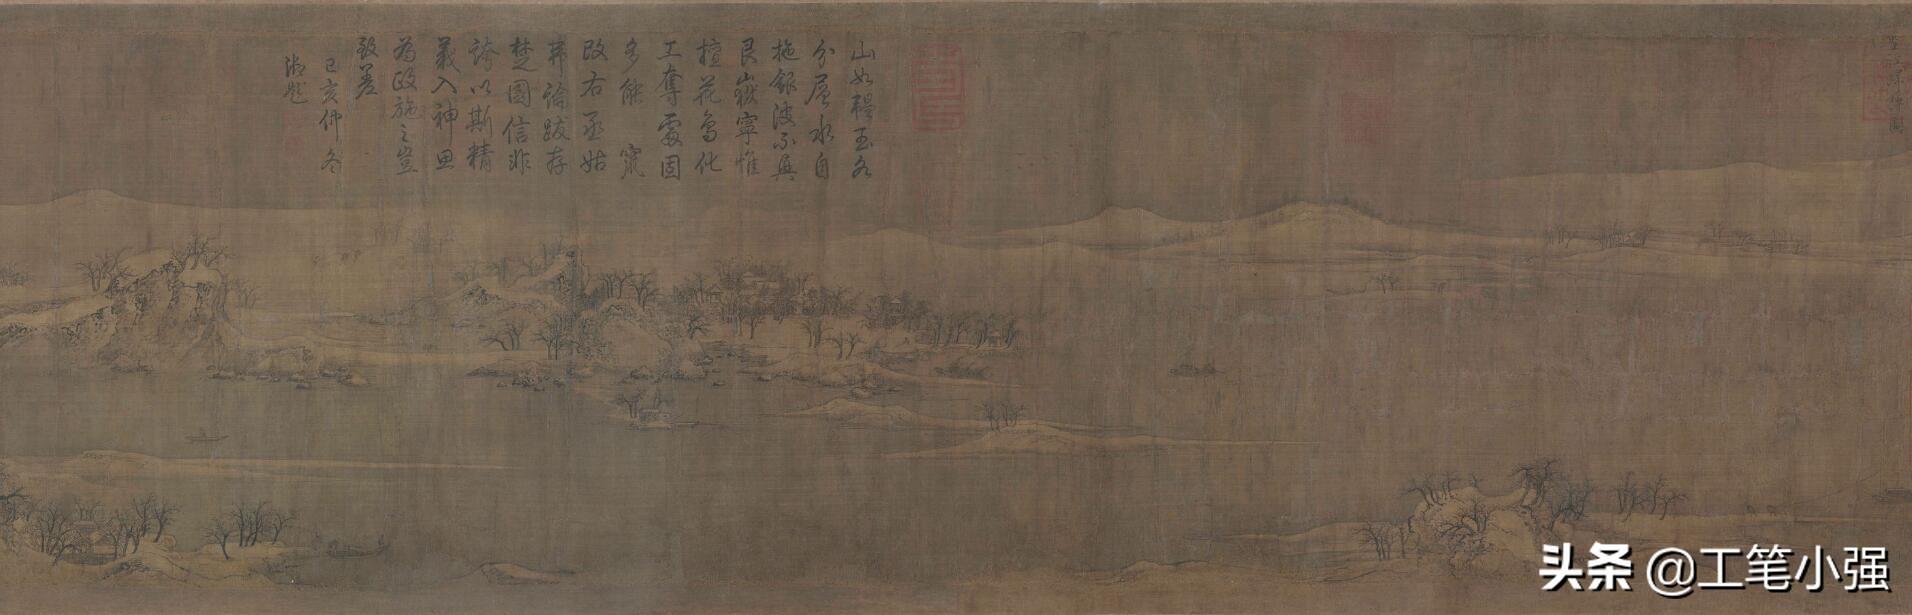 雪江歸棹圖
山如韞玉各
分層水自
拖銀波不興
艮嶽寧惟
擅花鳥化
工奪處固
多能竄
改右丞姑
弗論跋存
楚國信非
誇以斯精
義入神思
為政施之豈
致差
己亥仲冬
御題
头条 @工笔小强